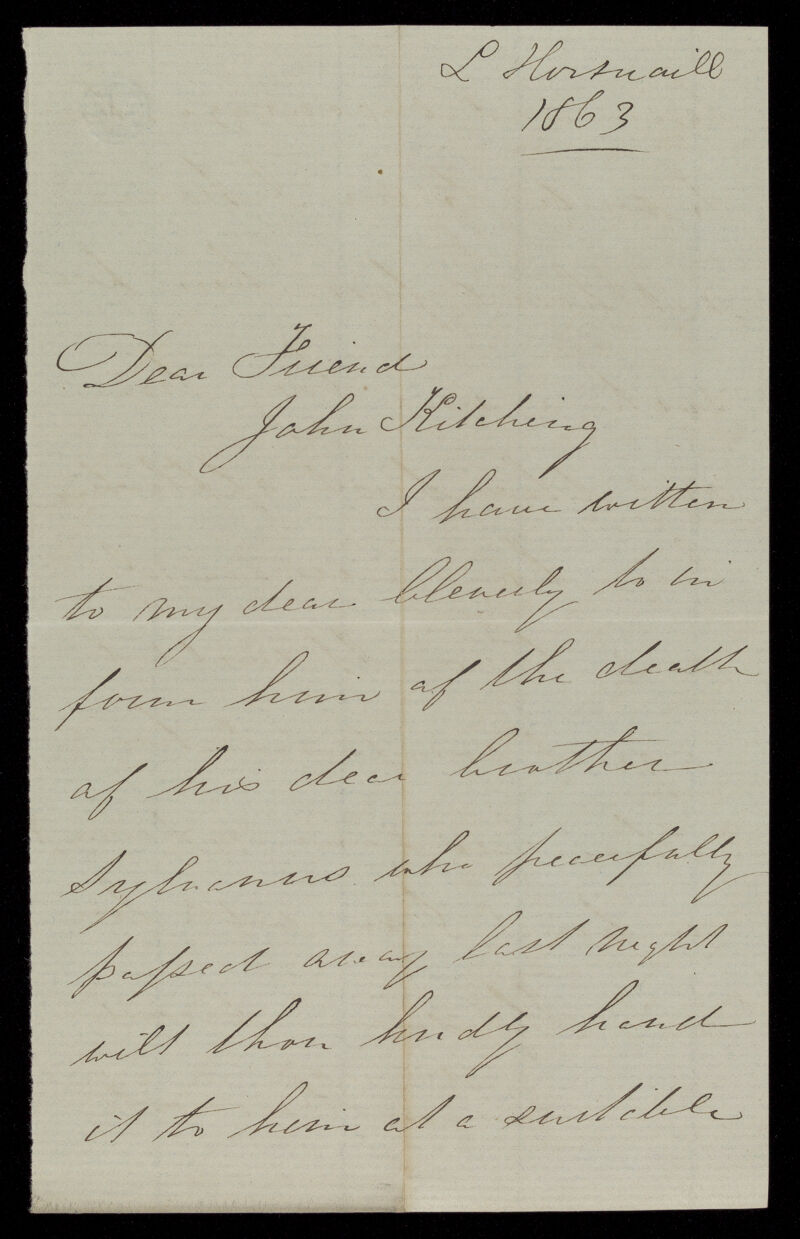 L Horsnaill
1863
Dear Friend
John Kitching
I have written
to my dear Cleverly to in
form him of the death
of his dear brother
Sylvanus who peacefully
passed away last night
wilt thou kindly hand
it to him at a suitable